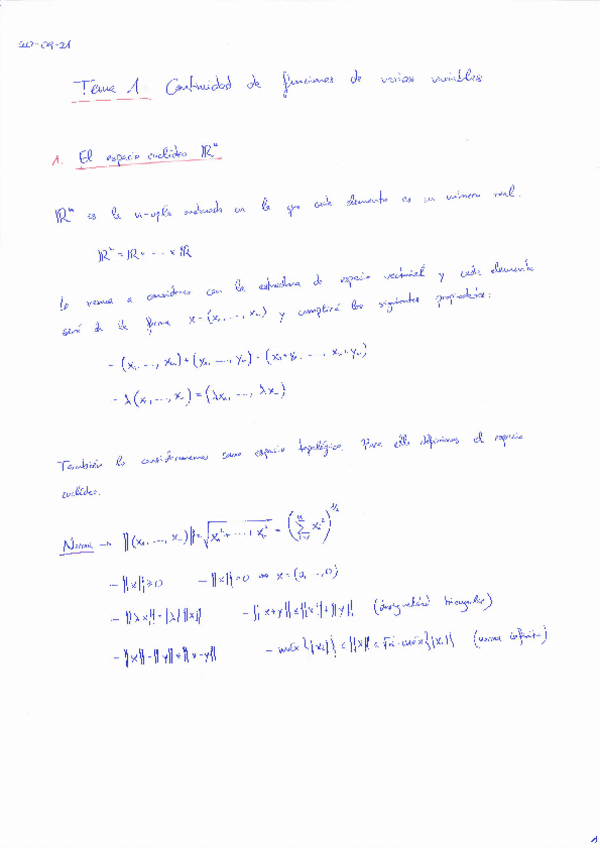 Tema 1 Continuidad de funciones de varias variables
1. El espacio euclídeo ℝⁿ
ℝⁿ es la n-upla ordenada en la que cada elemento es un número real.
ℝⁿ = ℝ × ··· × ℝ
Lo vamos a considerar con la estructura de espacio vectorial y cada elemento
será de la forma x = (x₁, ..., xₙ) y cumplirá las siguientes propiedades:
- (x₁, ..., xₙ) + (y₁, ..., yₙ) = (x₁+y₁, ..., xₙ+yₙ)
- λ(x₁, ..., xₙ) = (λx₁, ..., λxₙ)
También lo consideraremos como espacio topológico. Para ello definimos el espacio
euclídeo.
Norma → ‖(x₁, ..., xₙ)‖ = √(x₁² + ··· + xₙ²) = (∑ᵢ₌₁ⁿ xᵢ²)^(1/2)
- ‖x‖ ≥ 0 - ‖x‖ = 0 ⇔ x = (0, ..., 0)
- ‖λx‖ = |λ| ‖x‖ - ‖x+y‖ ≤ ‖x‖ + ‖y‖ (desigualdad triangular)
- ‖x‖ - ‖y‖ ≤ ‖x-y‖ - máx{|xᵢ|} ≤ ‖x‖ ≤ √n · máx{|xᵢ|} (norma infinito)
1